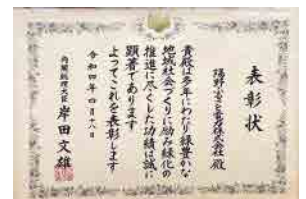 表彰状
株式会社 殿
貴殿は多年にわたり緑豊かな
地域社会づくりに励み緑化の
推進に尽くした功績は誠に
顕著であります
よってこれを表彰します
令和四年四月十八日
内閣総理大臣 岸田文雄